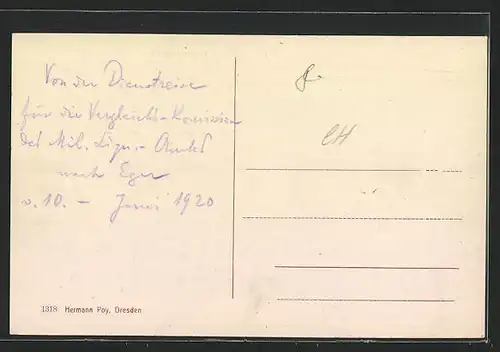 Von der Dienstreise
für die Vergleichs-Komission
des Mil. Liqu.- Amtes
nach Eger
v. 10. - Juni 1920
CH
1318 Hermann Poy, Dresden